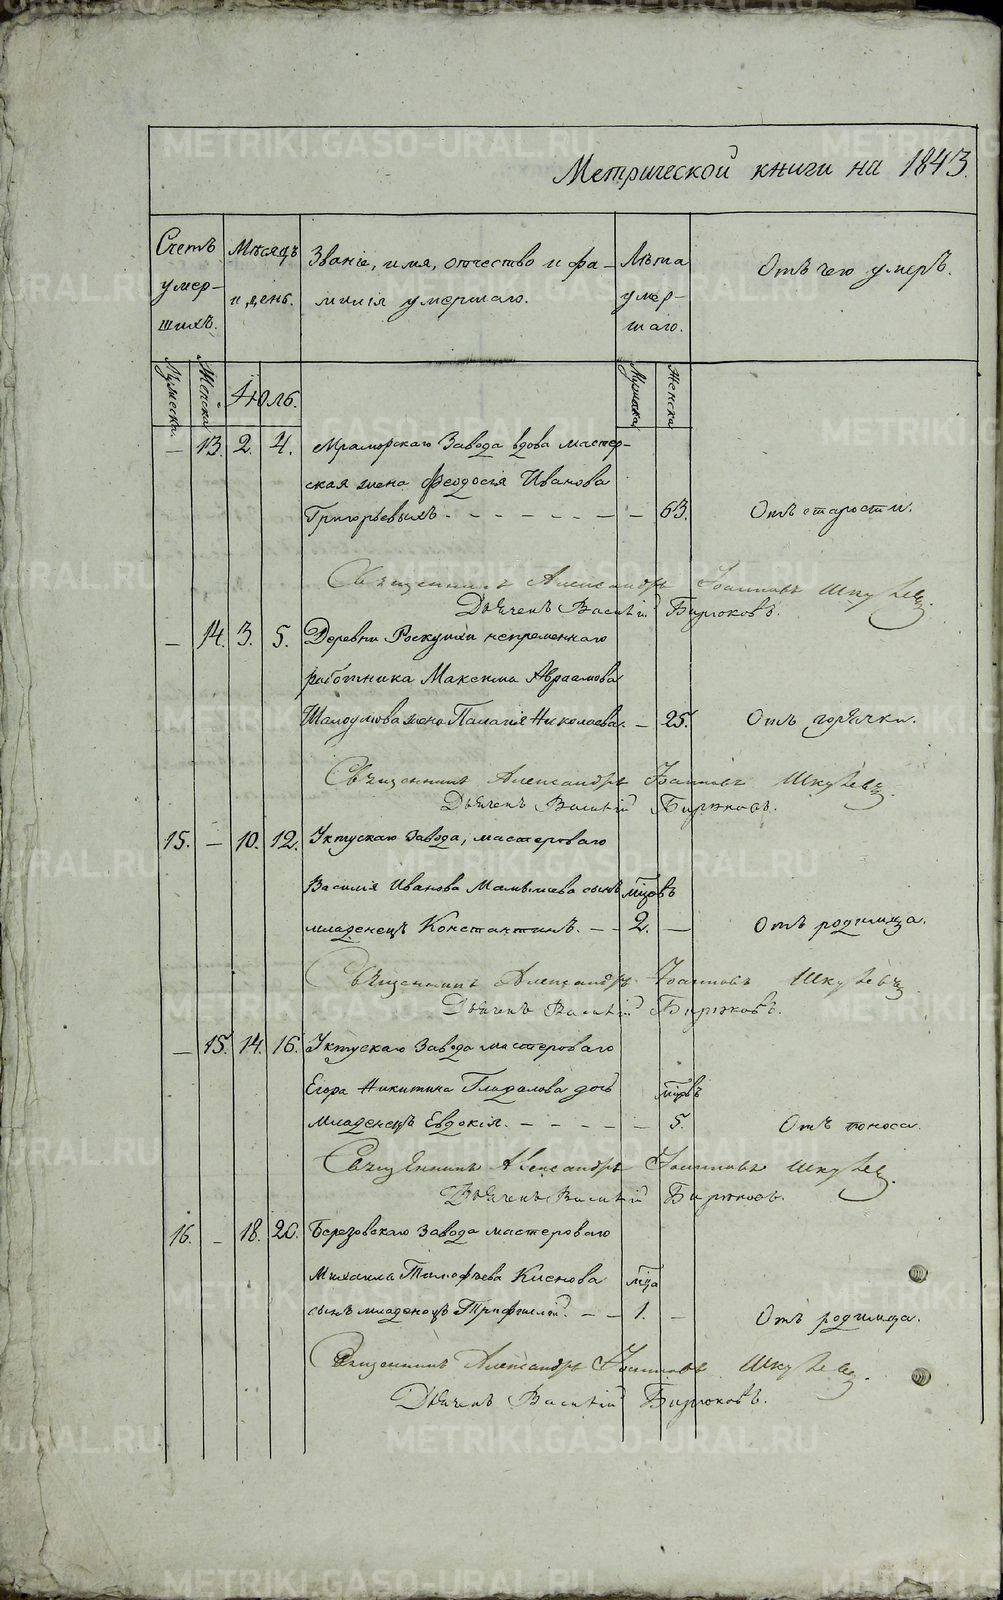 Метрической книги на 1843.
Счетъ умер-шихъ.
Мѣсяцъ и день.
Званіе, имя, отчество и фа-
милія умершаго.
Лѣта умер-шаго.
Отъ чего умеръ.
Мужеска. Женска
Іюль.
Мужеска Женска
— 13. 2. 4. Мраморскаго Завода вдова мастер-
ская жена Феодосія Иванова
Григорьевыхъ. — 63. Отъ старости.
Священникъ Александръ Іоанновъ
Дьяченъ Василій Бирюковъ.
— 14. 3. 5. Деревни непременнаго
работника Максима Авраамова
жена Палагія Николаева. — 25. Отъ горячки.
Священникъ Александръ Іоанновъ
Дьяченъ Василій Бирюковъ.
15. — 10. 12. Уктускаго Завода, мастероваго
Василія Иванова сынъ мцовъ
младенецъ Константинъ. — 2. — Отъ родимца.
Священникъ Александръ Іоанновъ
Дьяченъ Василій Бирюковъ.
— 15. 14. 16. Уктускаго Завода мастероваго
Егора Никитина дочь мцовъ
младенецъ Евдокія. — 5. Отъ поноса.
Священникъ Александръ Іоанновъ
Дьяченъ Василій Бирюковъ.
16. — 18. 20. Березовскаго Завода мастероваго
Михаила Тимофѣева мца
сынъ младенецъ Трифилій. — 1. — Отъ родимца.
Священникъ Александръ Іоанновъ
Дьяченъ Василій Бирюковъ.
METRIKI.GASO-URAL.RU